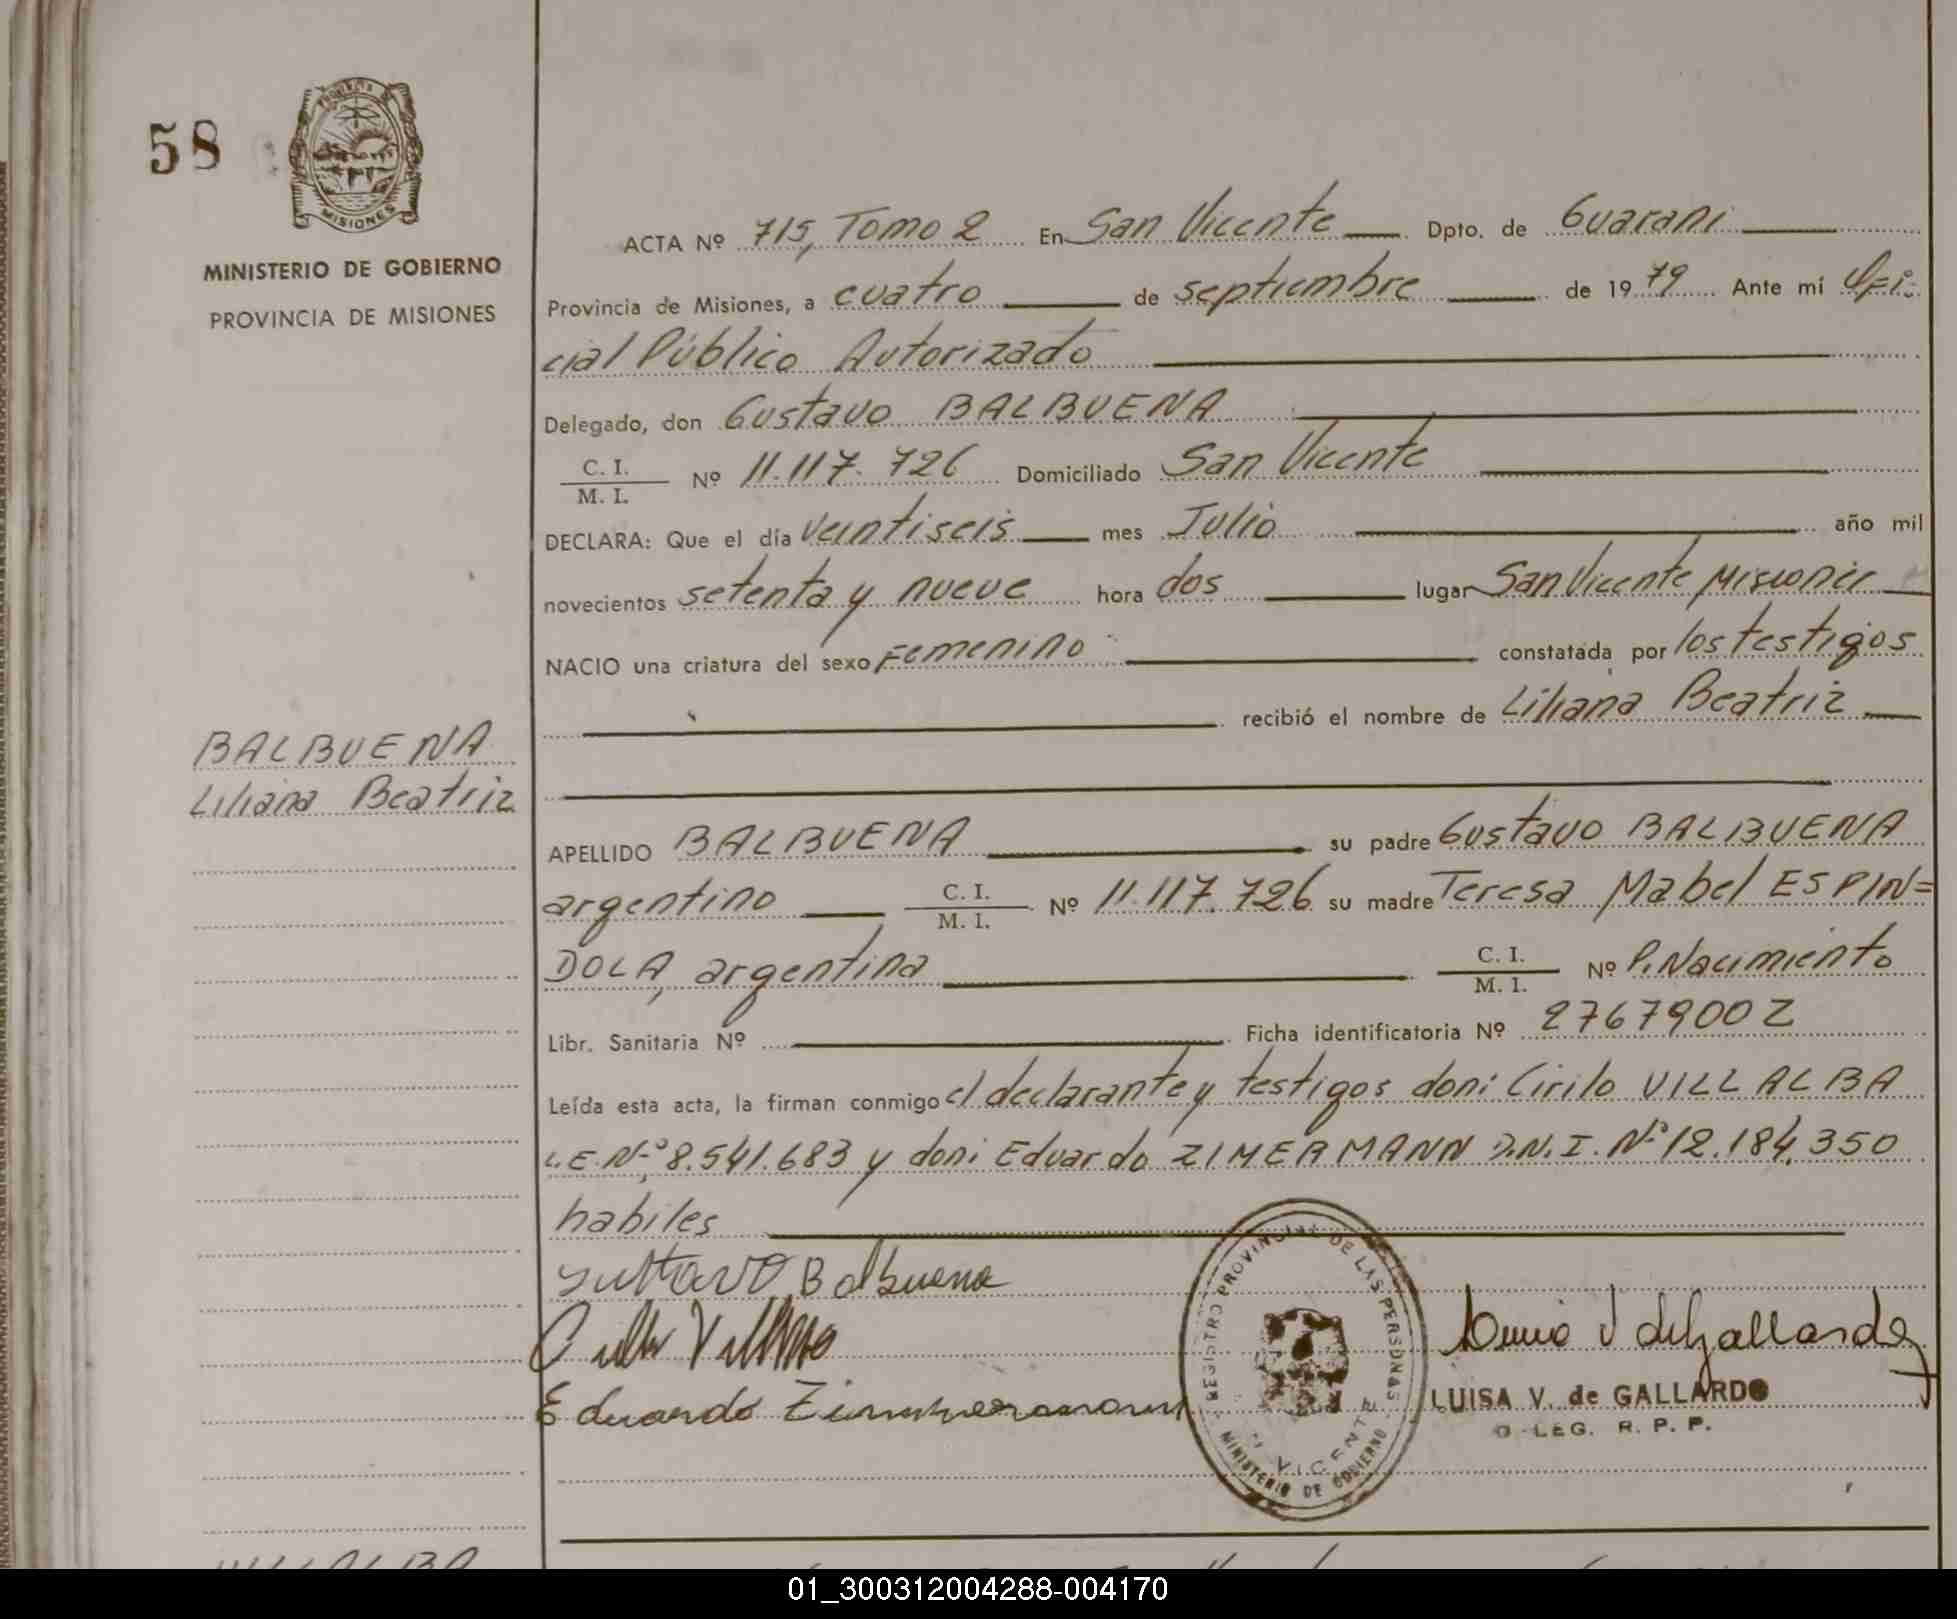 58
MISIONES
MINISTERIO DE GOBIERNO
PROVINCIA DE MISIONES
ACTA Nº 715, Tomo 2 En San Vicente Dpto. de Guarani
Provincia de Misiones, a cuatro de septiembre de 1979 Ante mí Ofi-
cial Público Autorizado
Delegado, don Gustavo BALBUENA
C. I.
M. I. Nº 11.117.726 Domiciliado San Vicente
DECLARA: Que el día veintiseis mes Julio año mil
novecientos setenta y nueve hora dos lugar San Vicente Misiones
NACIO una criatura del sexo Femenino constatada por los testigos
recibió el nombre de Liliana Beatriz
BALBUENA
Liliana Beatriz
APELLIDO BALBUENA su padre Gustavo BALBUENA
argentino C. I. M. I. Nº 11.117.726 su madre Teresa Mabel ESPIN=
DOLA, argentina C. I. M. I. Nº P. Nacimiento
Libr. Sanitaria Nº Ficha identificatoria Nº 27679002
Leída esta acta, la firman conmigo el declarante y testigos don: Cirilo VILLALBA
L.E. Nº 8.541.683 y don: Eduardo ZIMERMANN D.N.I. Nº 12.184.350
habiles
Gustavo Balbuena
Eduardo Zimmermann
REGISTRO PROVINCIAL DE LAS PERSONAS
VICENTE
MINISTERIO DE GOBIERNO
LUISA V. de GALLARDO
LEG. R. P. P.
VILLALBA
01_300312004288-004170